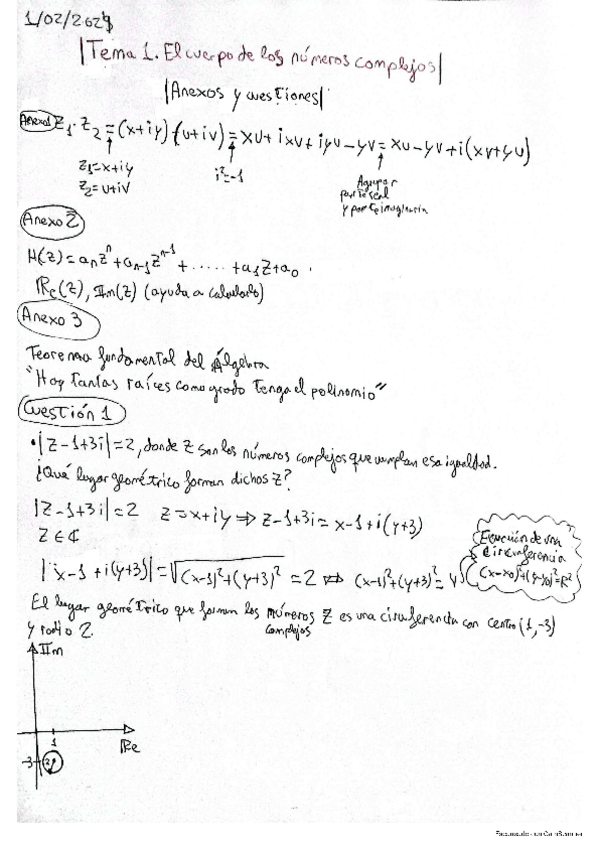 1/02/2024
|Tema 1. El cuerpo de los números complejos|
|Anexos y cuestiones|
Anexo 1 Z₁·Z₂ = (x+iy)·(u+iv) = xu + ixv + iyu − yv = xu − yv + i(xv+yu)
Z₁=x+iy
Z₂=u+iv
i²=-1
Agrupar
parte real
y parte imaginaria
Anexo 2
H(z) = aₙzⁿ + aₙ₋₁zⁿ⁻¹ + ...... + a₁z + a₀.
Re(z), Im(z) (ayuda a calcularlo)
Anexo 3
Teorema fundamental del Álgebra
"Hay tantas raíces como grado tenga el polinomio"
Cuestión 1
•|z-1+3i|=2, donde z son los números complejos que cumplan esa igualdad.
¿Qué lugar geométrico forman dichos z?
|z-1+3i|=2 z=x+iy ⇒ z-1+3i = x-1+i(y+3)
z∈ℂ
|x-1+i(y+3)| = √(x-1)²+(y+3)² = 2 ⇔ (x-1)²+(y+3)² = 4
Ecuación de una
circunferencia
(x-x₀)²+(y-y₀)²=R²
El lugar geométrico que forman los números z es una circunferencia con centro (1,-3)
complejos
y radio 2.
Im
1
Re
-3
2